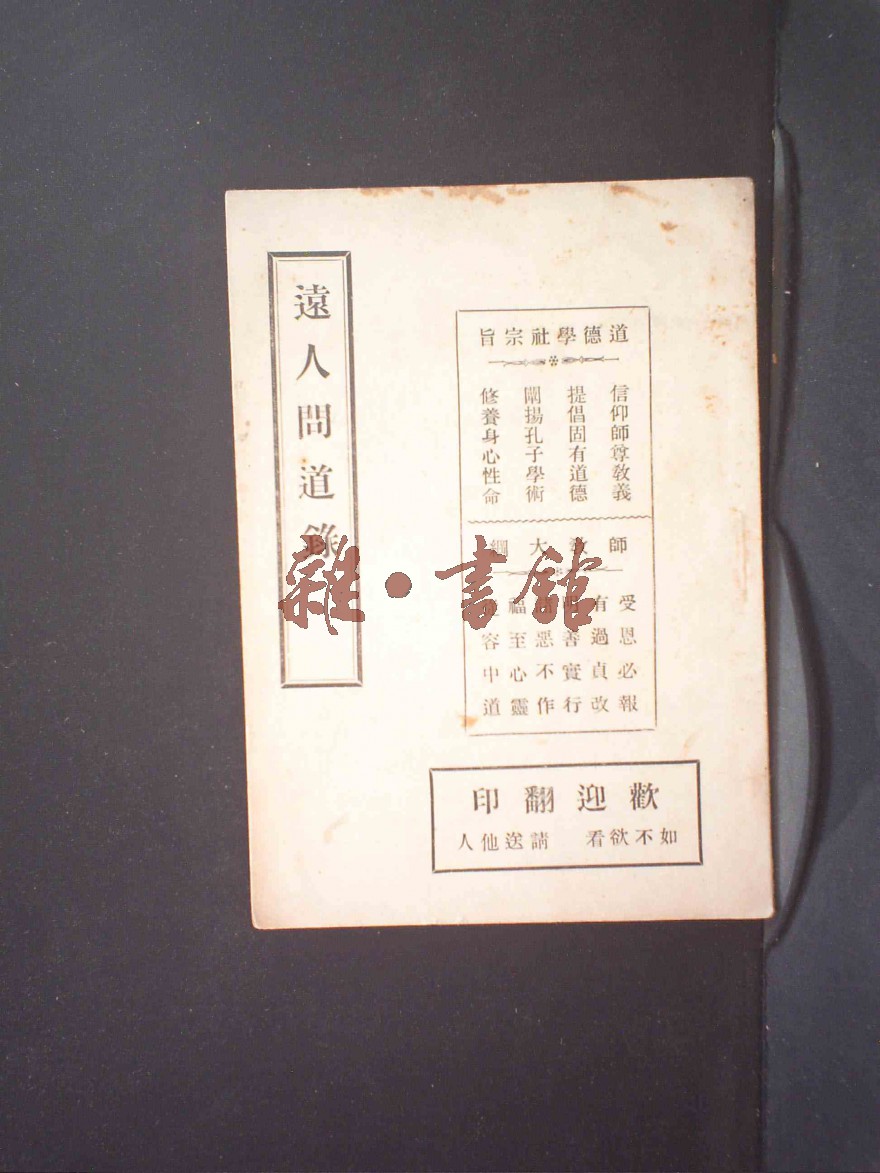 遠人問道錄
道德學社宗旨
信仰師尊教義
提倡固有道德
闡揚孔子學術
修養身心性命
師教大綱
受恩必報
有過貞改
明善實行
惡不作
福至心靈
從容中道
歡迎翻印
如不欲看 請送他人
雜·書館